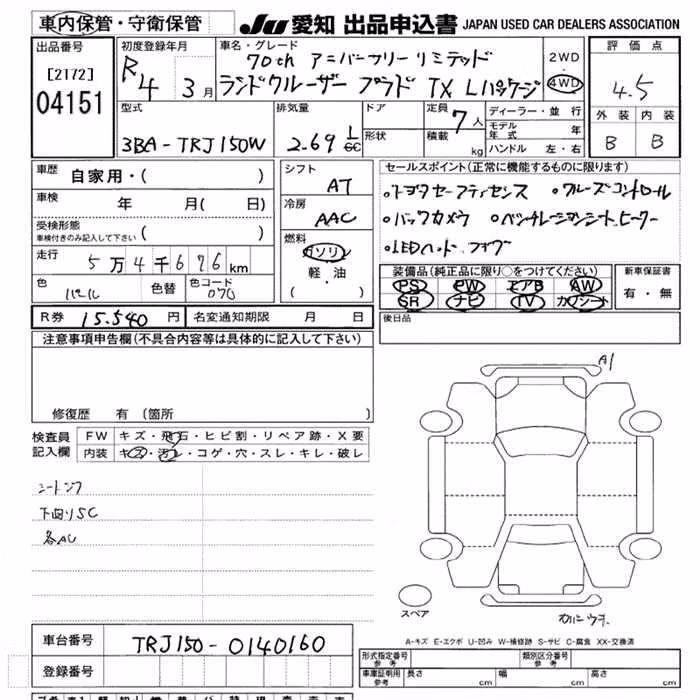 車内保管・守衛保管
JU 愛知 出品申込書 JAPAN USED CAR DEALERS ASSOCIATION
出品番号
[2172]
04151
初度登録年月
R4 3月
車名・グレード
70th アニバーサリーリミテッド
ランドクルーザー プラド TX Lパッケージ
2WD
・
4WD
評価点
4.5
外装 内装
B B
型式
3BA-TRJ150W
排気量
2.69 L
cc
ドア
形状
定員 7人
積載 kg
ディーラー・並行
モデル年式 年
ハンドル 左・右
車歴 自家用・( )
車検 年 月( 日)
受検形態
車検付きのみ記入して下さい ( )
走行 5万4千676km
色 パール 色替 色コード 070
シフト
AT
冷房
AAC
燃料
ガソリン
軽・油
( )
セールスポイント(正常に機能するものに限ります)
・トヨタセーフティセンス ・クルーズコントロール
・バックカメラ ・ベンチレーションシートヒーター
・LEDヘッド・フォグ
装備品(純正品に限り○をつけてください)
PS PW エアB AW
SR ナビ TV カワシート
新車保証書
有・無
R券 15.540円 名変通知期限 月 日
後日品
注意事項申告欄(不具合内容等は具体的に記入して下さい)
修復歴 有(箇所 )
検査員記入欄
FW キズ・飛石・ヒビ割・リペア跡・X要
内装 キズ・汚レ・コゲ・穴・スレ・キレ・破レ
下回りSC
各AU
A1
スペア
A-キズ E-エクボ U-凹み W-補修跡 S-サビ C-腐食 XX-交換済
車台番号 TRJ150-0140160
登録番号
形式指定番号 参考
類別区分番号 参考
車庫証明用 参考 長さ cm 幅 cm 高さ cm